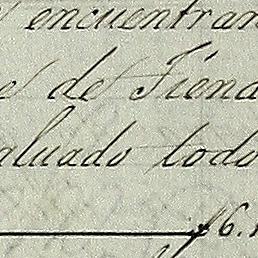 encuentran
de Tiend
aluado todo
16.